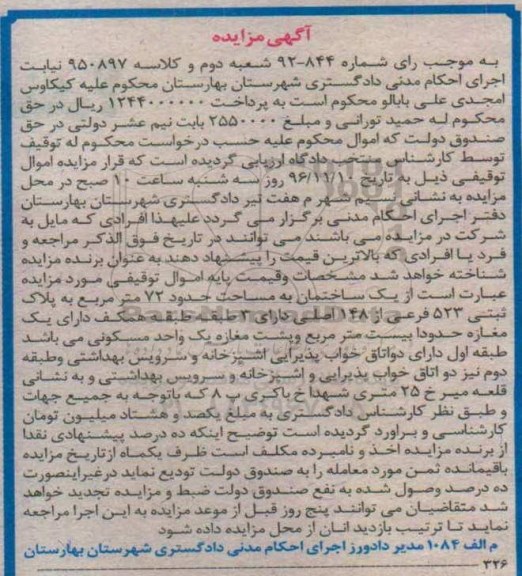 آگهی مزایده
به موجب رای شماره ۸۴۴-۹۲ شعبه دوم و کلاسه ۹۵۰۸۹۷ نیابت
اجرای احکام مدنی دادگستری شهرستان بهارستان محکوم علیه کیکاوس
امجدی علی بابالو محکوم است به پرداخت ۱۲۴۴۰۰۰۰۰۰ ریال در حق
محکوم له حمید تورانی و مبلغ ۲۵۵۰۰۰۰ بابت نیم عشر دولتی در حق
صندوق دولت که اموال محکوم علیه حسب درخواست محکوم له توقیف
توسط کارشناس منتخب دادگاه ارزیابی گردیده است که قرار مزایده اموال
توقیفی ذیل به تاریخ ۹۶/۱۱/۱۰ روز سه شنبه ساعت ۱۰ صبح در محل
مزایده به نشانی نسیم شهر م هفت تیر دادگستری شهرستان بهارستان
دفتر اجرای احکام مدنی برگزار می گردد علیهذا افرادی که مایل به
شرکت در مزایده می باشند می توانند در تاریخ فوق الذکر مراجعه و
فرد یا افرادی که بالاترین قیمت را پیشنهاد دهند به عنوان برنده مزایده
شناخته خواهد شد مشخصات وقیمت پایه اموال توقیفی مورد مزایده
عبارت است از یک ساختمان به مساحت حدود ۷۲ متر مربع به پلاک
ثبتی ۵۲۳ فرعی از ۱۴۸ اصلی دارای ۳ طبقه طبقه همکف دارای یک
مغازه حدودا بیست متر مربع وپشت مغازه یک واحد مسکونی می باشد
طبقه اول دارای دواتاق خواب پذیرایی اشپزخانه و سرویس بهداشتی وطبقه
دوم نیز دو اتاق خواب پذیرایی و اشپزخانه و سرویس بهداشتی و به نشانی
قلعه میر خ ۲۵ متری شهدا خ باکری پ ۸ که باتوجه به جمیع جهات
و طبق نظر کارشناس دادگستری به مبلغ یکصد و هشتاد میلیون تومان
کارشناسی و براورد گردیده است توضیح اینکه ده درصد پیشنهادی نقدا
از برنده مزایده اخذ و نامبرده مکلف است ظرف یکماه ازتاریخ مزایده
باقیمانده ثمن مورد معامله را به صندوق دولت تودیع نماید درغیراینصورت
ده درصد وصول شده به نفع صندوق دولت ضبط و مزایده تجدید خواهد
شد متقاضیان می توانند پنج روز قبل از موعد مزایده به این اجرا مراجعه
نماید تا ترتیب بازدید انان از محل مزایده داده شود
م الف ۱۰۸۴ مدیر دادورز اجرای احکام مدنی دادگستری شهرستان بهارستان
۳۲۶